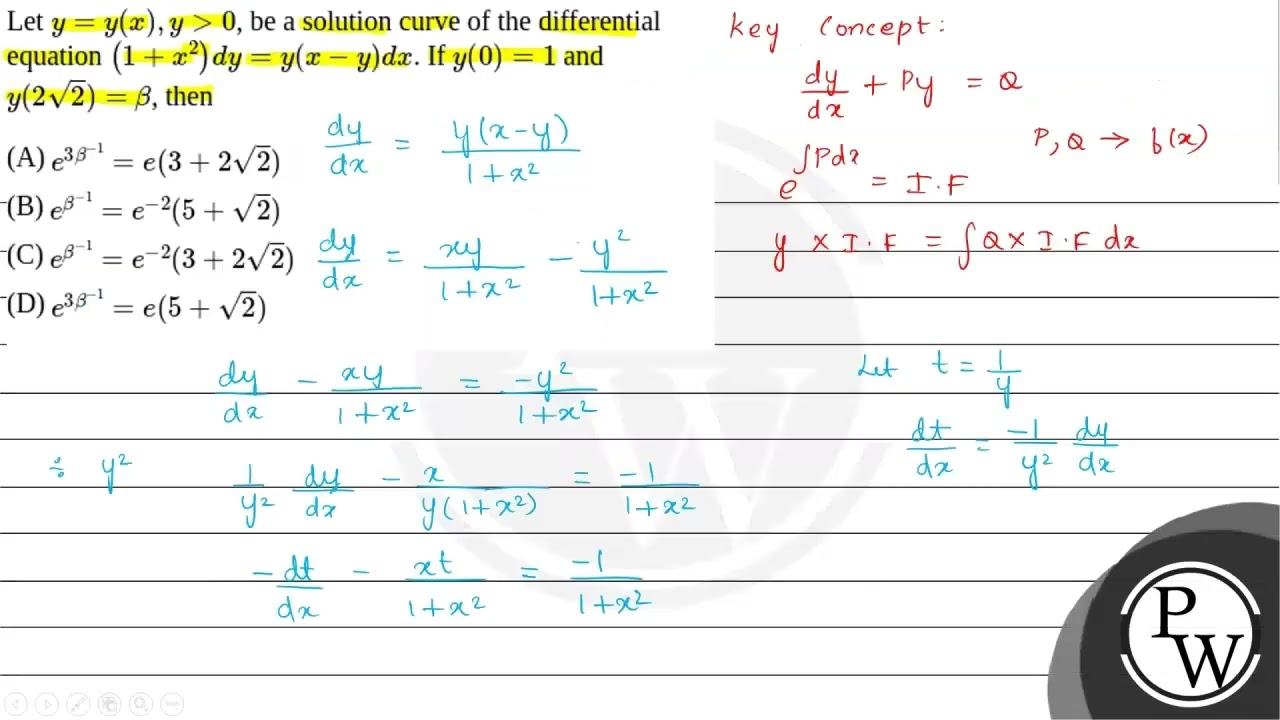 Let y = y(x), y > 0, be a solution curve of the differential
equation (1 + x²) dy = y(x − y)dx. If y(0) = 1 and
y(2√2) = β, then
(A) e^{3β^{-1}} = e(3 + 2√2)
(B) e^{β^{-1}} = e^{-2}(5 + √2)
(C) e^{β^{-1}} = e^{-2}(3 + 2√2)
(D) e^{3β^{-1}} = e(5 + √2)
dy/dx = y(x-y)/(1+x²)
dy/dx = xy/(1+x²) - y²/(1+x²)
dy/dx - xy/(1+x²) = -y²/(1+x²)
÷ y² 1/y² dy/dx - x/(y(1+x²)) = -1/(1+x²)
-dt/dx - xt/(1+x²) = -1/(1+x²)
Key Concept:
dy/dx + Py = Q
P, Q → f(x)
e^{∫Pdx} = I.F
y × I.F = ∫Q × I.F dx
Let t = 1/y
dt/dx = -1/y² dy/dx
PW